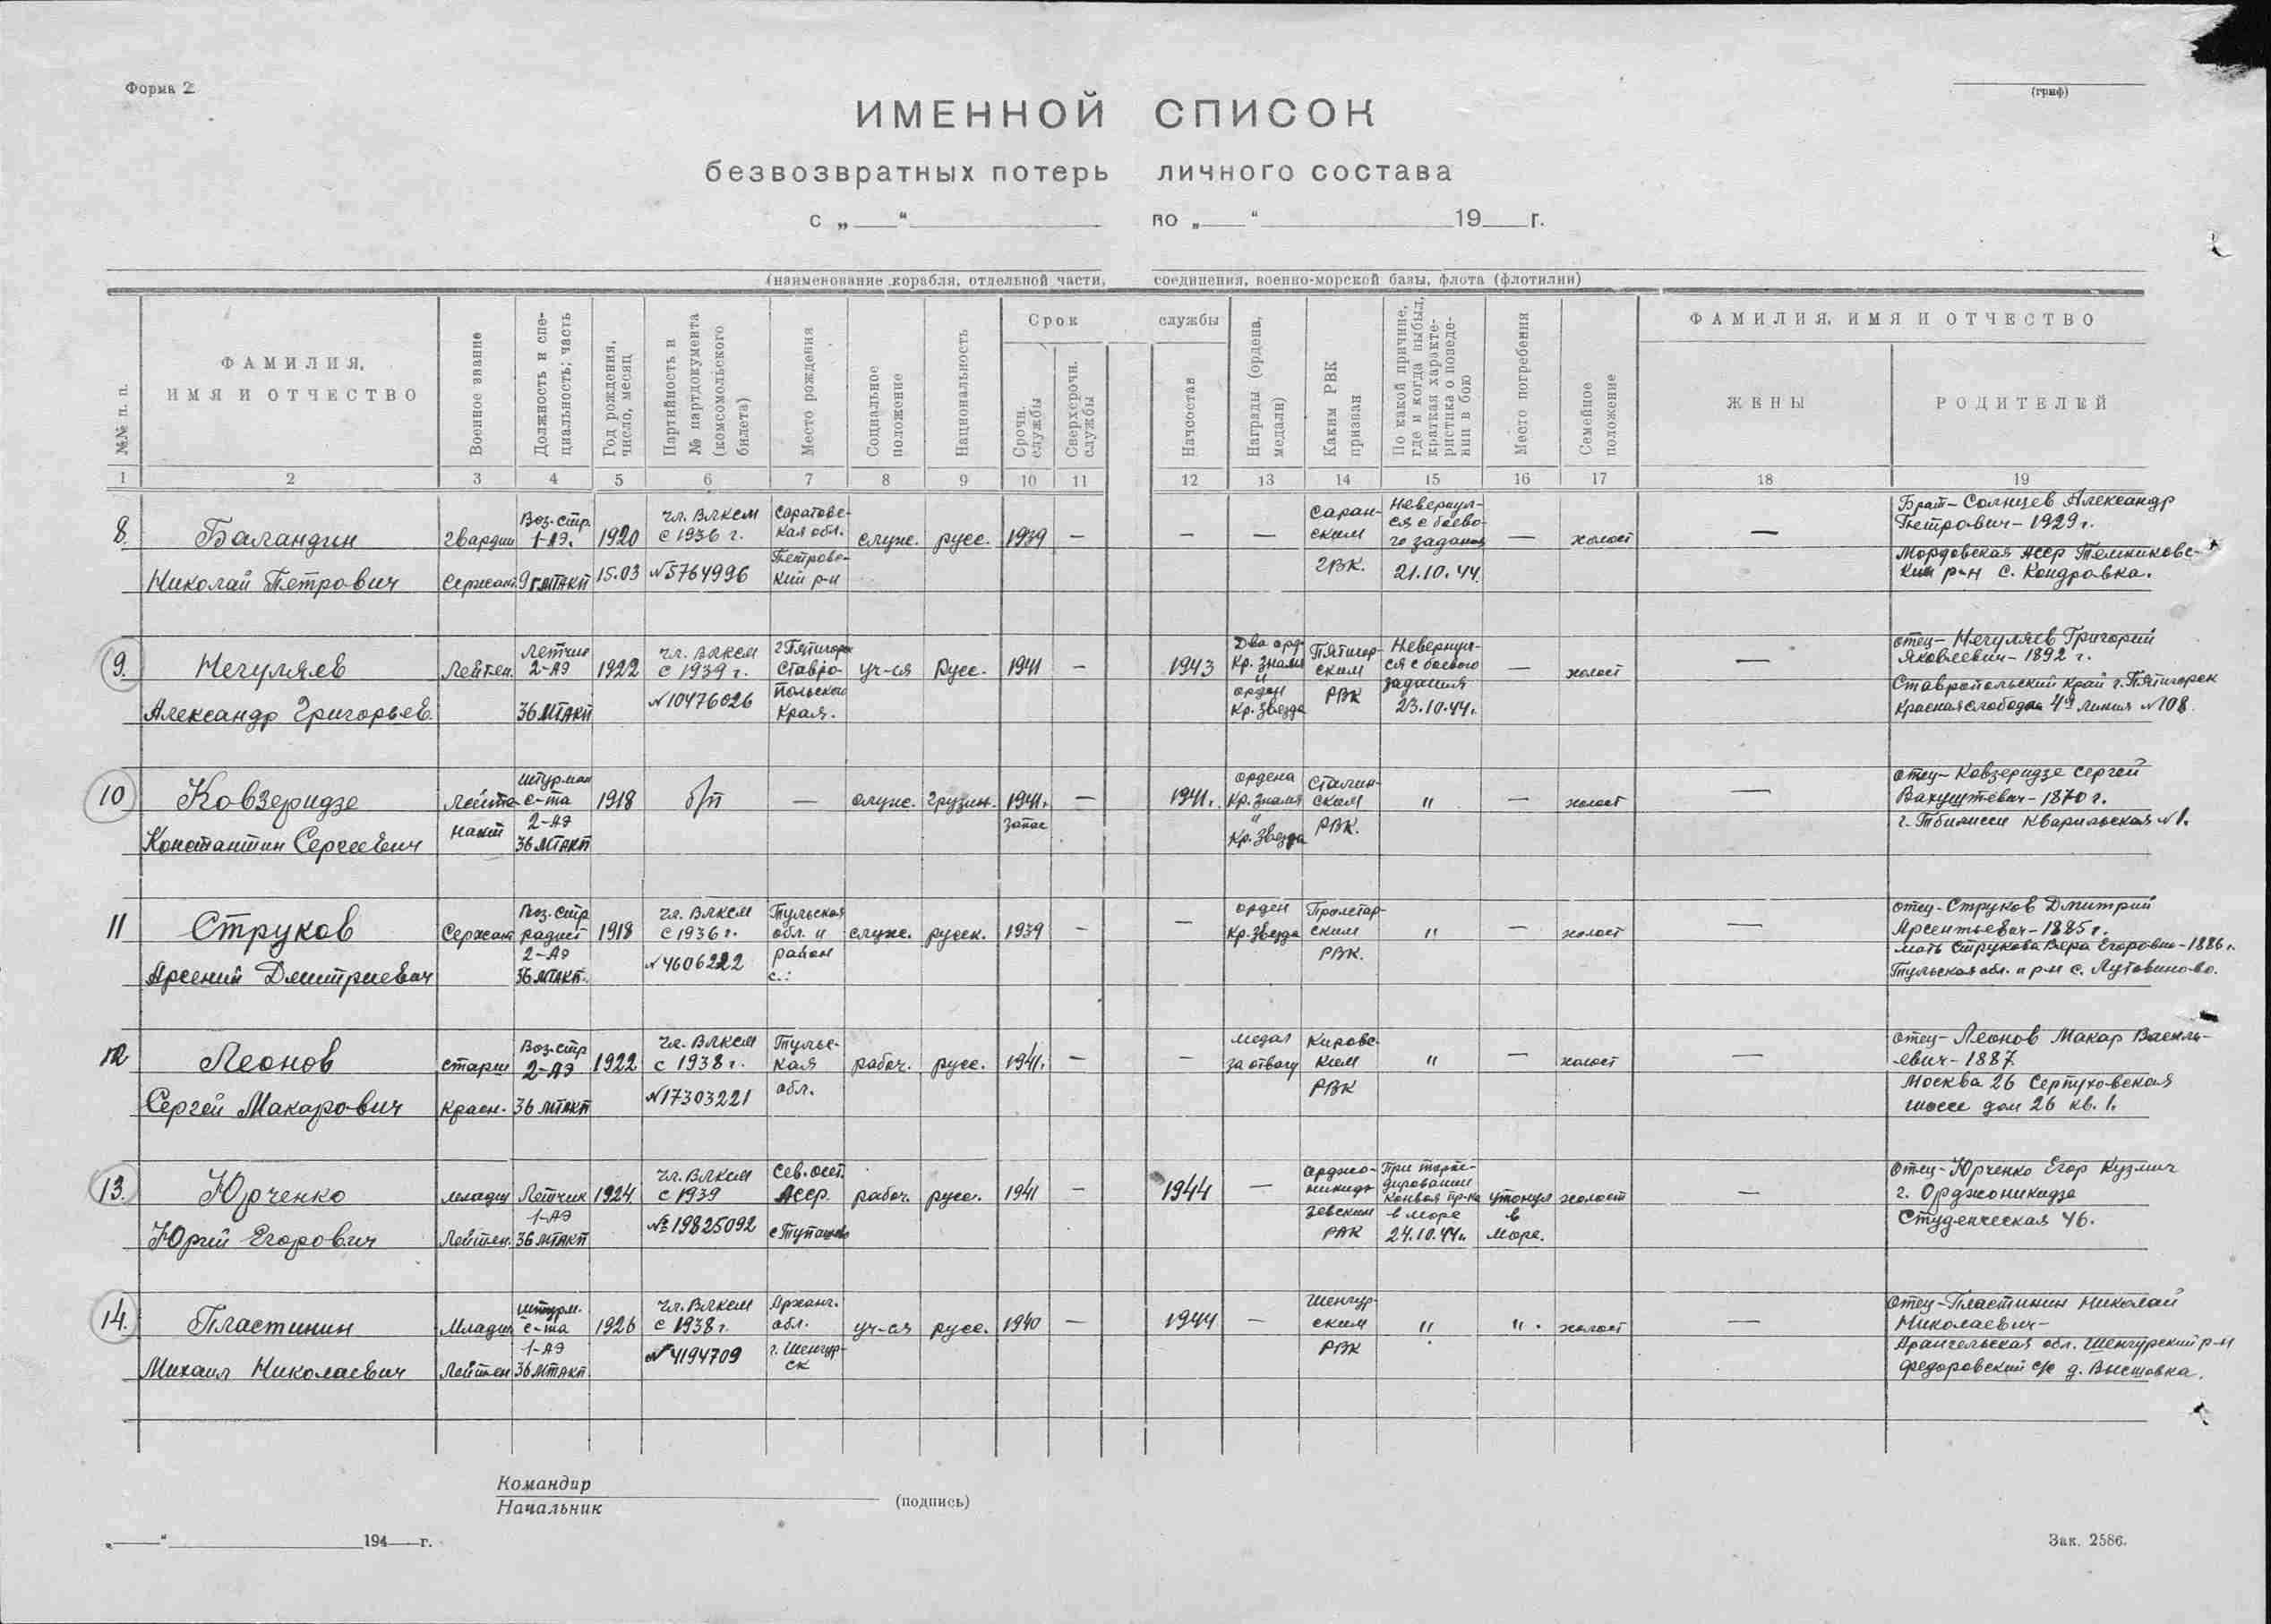 Форма 2
(гриф)
ИМЕННОЙ СПИСОК
безвозвратных потерь личного состава
с „ “ по „ “ 19 г.
(наименование корабля, отдельной части, соединения, военно-морской базы, флота (флотилии)
№№ п. п.
ФАМИЛИЯ,
ИМЯ И ОТЧЕСТВО
Военное звание
Должность и спе-
циальность; часть
Год рождения,
число, месяц
Партийность и
№ партдокумента
(комсомольского
билета)
Место рождения
Социальное
положение
Национальность
Срок службы
Срочн.
службы
Сверхсрочн.
службы
Начсостав
Награды (ордена,
медали)
Каким РВК
призван
По какой причине,
где и когда выбыл,
краткая характе-
ристика о поведе-
нии в бою
Место погребения
Семейное
положение
ФАМИЛИЯ, ИМЯ И ОТЧЕСТВО
ЖЕНЫ
РОДИТЕЛЕЙ
1 2 3 4 5 6 7 8 9 10 11 12 13 14 15 16 17 18 19
8.
Баландин
Николай Петрович
Гвардии
Сержант
Воз-стр.
1-АЭ.
9 гМТАКП
1920
15.03
чл. ВЛКСМ
с 1936 г.
№5764996
Саратовс-
кая обл.
Петровс-
кий р-н
служ.
русс.
1939
—
—
—
Саран-
ским
ГВК.
Невернул-
ся с боево-
го задания
21.10.44.
—
холост
—
Брат – Солнцев Александр
Петрович – 1929 г.
Мордовская АССР Темниковс-
кий р-н с. Кондровка.
9.
Негуляев
Александр Григорьев.
Лейтен.
Летчик
2-АЭ
36 МТАКП
1922
чл. ВЛКСМ
с 1939 г.
№10476026
г Пятигорск
Ставро-
польского
края.
уч-ся
Русс.
1941
—
1943
Два орд.
Кр. знамя
и
орден
Кр. звезда
Пятигор-
ским
РВК
Невернул-
ся с боевого
задания
23.10.44г.
—
холост
—
отец – Негуляев Григорий
Яковлевич – 1892 г.
Ставропольский край г. Пятигорск
Красная слободка 4я линия №108.
10
Ковзеридзе
Константин Сергеевич
Лейте-
нант
штурман
с-та
2-АЭ
36 МТАКП
1918
б/п
—
служ.
грузин.
1941г.
запас
—
1941г.
ордена
Кр. знамя
и
Кр. звезда
Сталин-
ским
РВК.
"
—
холост
—
отец – Ковзеридзе Сергей
Вахуштевич – 1870 г.
г. Тбилиси Кварильская №1.
11
Струков
Арсений Дмитриевич
Сержант
Воз-стр
радист
2-АЭ
36 МТАКП.
1918
чл. ВЛКСМ
с 1936 г.
№4606222
Тульская
обл. и
район
с.:
служ.
русск.
1939
—
—
орден
Кр. звезда
Пролетар-
ским
РВК.
"
—
холост
—
отец – Струков Дмитрий
Арсентьевич – 1885 г.
мать Струкова Вера Егоровна – 1886 г.
Тульская обл. и р-н с. Лутовиново.
12
Леонов
Сергей Макарович
старш
красн.
Воз-стр
2-АЭ
36 МТАКП
1922
чл. ВЛКСМ
с 1938 г.
№17303221
Тульс-
кая
обл.
рабоч.
русс.
1941г.
—
—
медал
за отвагу
Кировс-
ким
РВК
"
—
холост
—
отец – Леонов Макар Василь-
евич – 1887
Москва 26 Серпуховская
шоссе дом 26 кв. 1.
13.
Юрченко
Юрий Егорович
младш
Лейтен.
Летчик
1-АЭ
36 МТАКП
1924
чл. ВЛКСМ
с 1939
№19825092
Сев. осет.
АССР.
рабоч.
русс.
1941
—
1944
—
Орджо-
никид-
зевским
РВК
При торпе-
дировании
конвоя пр-ка
в море
24.10.44г.
утонул
в
море.
холост
—
Отец – Юрченко Егор Кузмич
г. Орджоникидзе
Студенческая 46.
14.
Пластинин
Михаил Николаевич
Младш
Лейтен
штурм.
с-та
1-АЭ
36 МТАКП.
1926
чл. ВЛКСМ
с 1938 г.
№4194709
Арханг.
обл.
г. Шенкур-
ск
уч-ся
русс.
1940
—
1944
—
Шенкур-
ским
РВК
"
"
холост
—
Отец – Пластинин Николай
Николаевич –
Арангельская обл. Шенкурский р-н
Федоровский с/с д. Выставка.
Командир
Начальник
(подпись)
„ “ 194 г.
Зак. 2586.